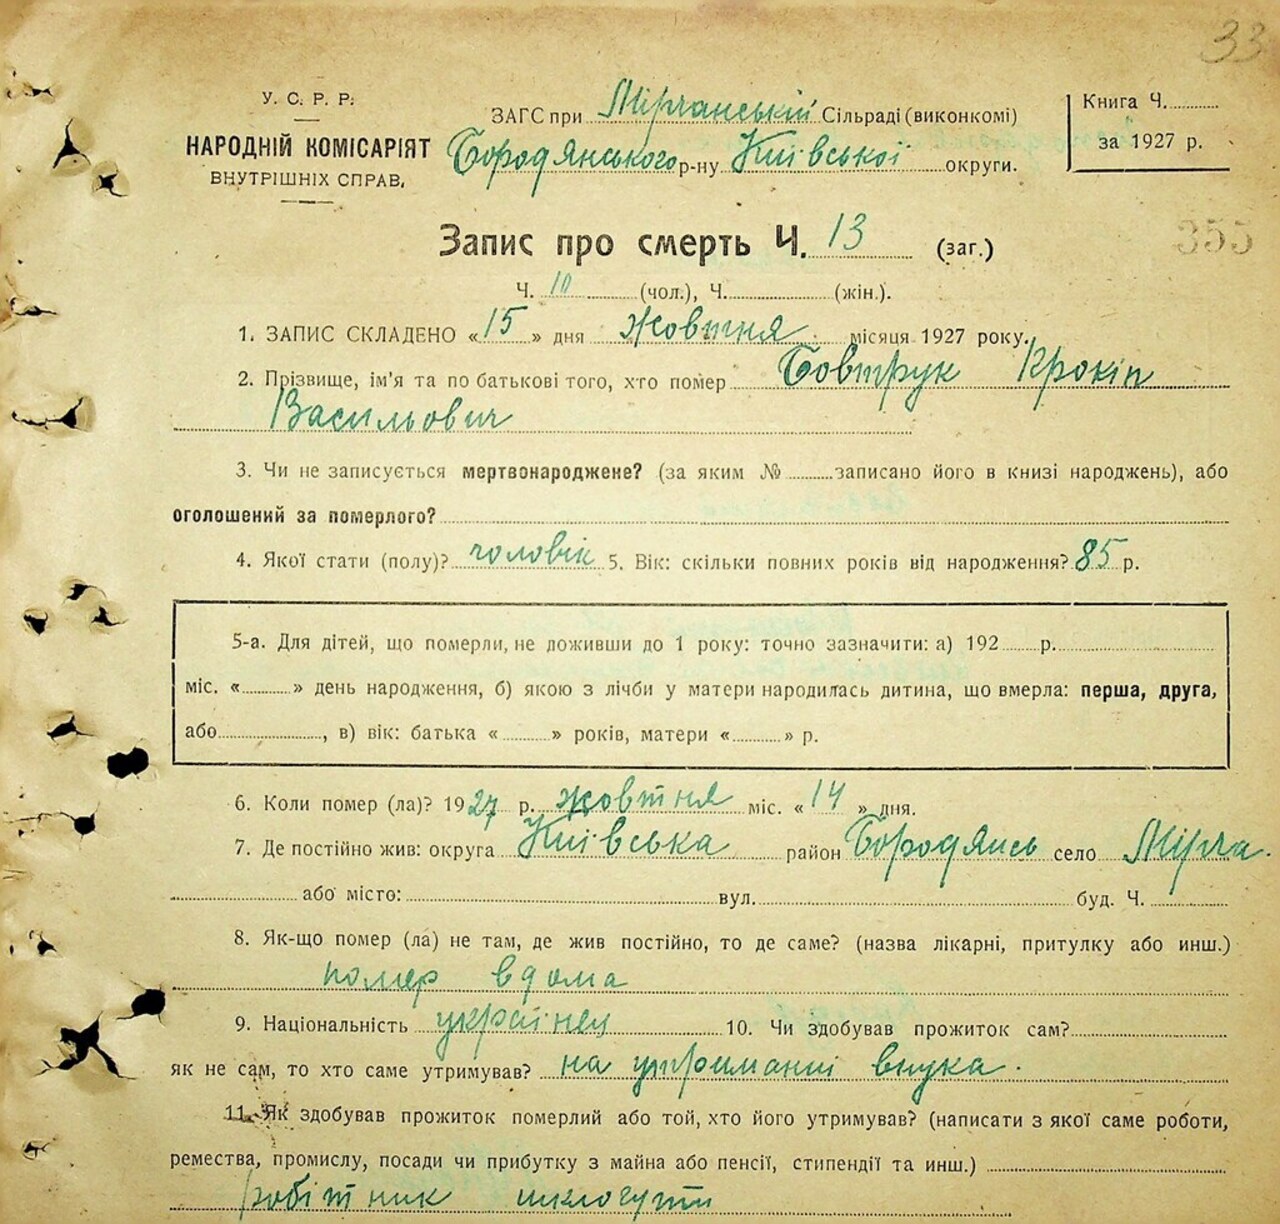 33
У. С. Р. Р.
НАРОДНІЙ КОМІСАРІЯТ
ВНУТРІШНІХ СПРАВ.
ЗАГС при Мірчанській Сільраді (виконкомі)
Бородянського р-ну Київської округи.
Книга Ч.
за 1927 р.
355
Запис про смерть Ч. 13 (заг.)
Ч. 10 (чол.), Ч. (жін.).
1. ЗАПИС СКЛАДЕНО «15» дня жовтня місяця 1927 року.
2. Прізвище, ім'я та по батькові того, хто помер Бовтрук Крокіп
Васильович
3. Чи не записується мертвонароджене? (за яким № записано його в книзі народжень), або
оголошений за померлого?
4. Якої стати (полу)? чоловік 5. Вік: скільки повних років від народження? 85 р.
5-а. Для дітей, що померли, не доживши до 1 року: точно зазначити: а) 192 р.
міс. « » день народження, б) якою з лічби у матери народилась дитина, що вмерла: перша, друга,
або , в) вік: батька « » років, матери « » р.
6. Коли помер (ла)? 1927 р. жовтня міс. «14» дня.
7. Де постійно жив: округа Київська район Бородянсь село Мірча.
або місто: вул. буд. Ч.
8. Як-що помер (ла) не там, де жив постійно, то де саме? (назва лікарні, притулку або инш.)
помер вдома
9. Національність українец 10. Чи здобував прожиток сам?
як не сам, то хто саме утримував? на утриманні внука.
11. Як здобував прожиток померлий або той, хто його утримував? (написати з якої саме роботи,
ремества, промислу, посади чи прибутку з майна або пенсії, стипендії та инш.)
робітник